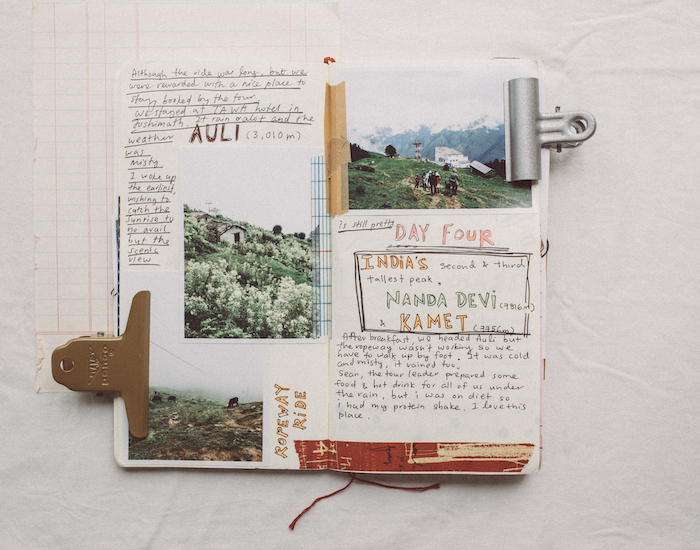 Although the ride was long, but we
were rewarded with a nice place to
stay booked by the tour.
We stayed at TAWA hotel in
Joshimath. It rain a lot and the
weather
AULI (3,010m)
was
misty.
I woke up
the earliest,
wishing to
catch the
sunrise to
no avail
but the
scenic
view
is still pretty
ROPEWAY
RIDE
DAY FOUR
INDIA'S second & third
tallest peak,
NANDA DEVI (7816m)
& KAMET (7756m)
After breakfast, we headed Auli but
the ropeway wasn't working so we
have to walk up by foot. It was cold
and misty, it rained too.
Sean, the tour leader prepared some
food & hot drink for all of us under
the rain, but i was on diet so
i had my protein shake. I love this
place.